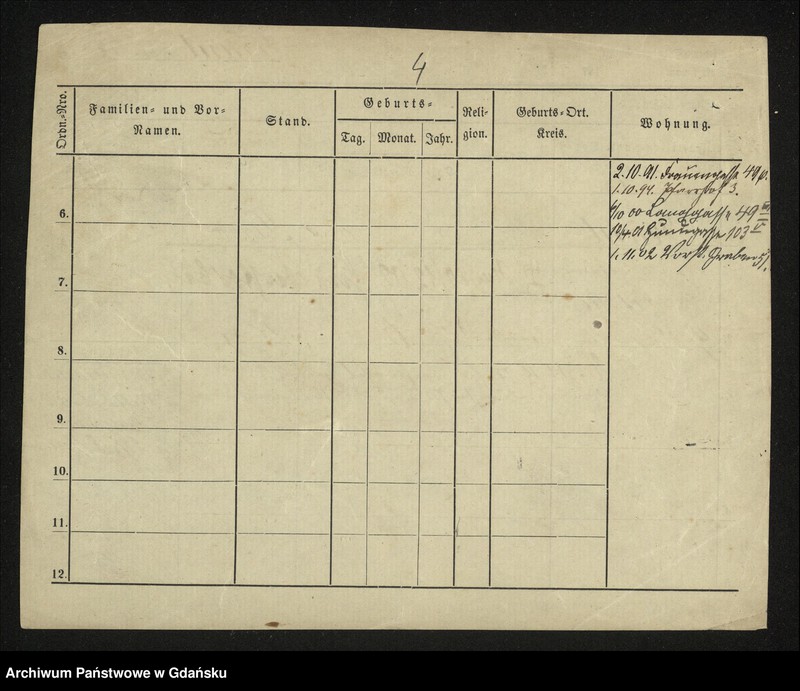 4
Ordn.-Nro.
Familien- und Vor-
Namen.
Stand.
Geburts-
Tag. Monat. Jahr.
Reli-
gion.
Geburts-Ort.
Kreis.
Wohnung.
2.10.91. Frauengasse 49 p.
1.10.94. Pfarrhof 3.
4/10 00 Langgasse 49 III
10/4.01 Hundegasse 103
1.11.02 Vorst. Graben 51.
6.
7.
8.
9.
10.
11.
12.
Archiwum Państwowe w Gdańsku